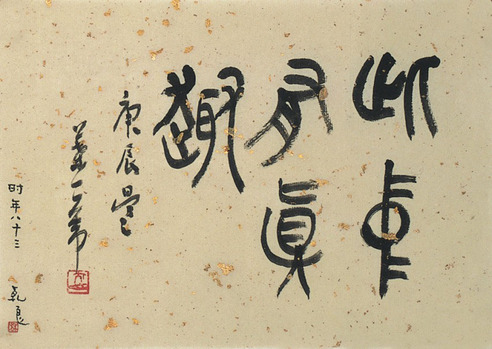 此中
有真
趣
庚辰
时年八十三